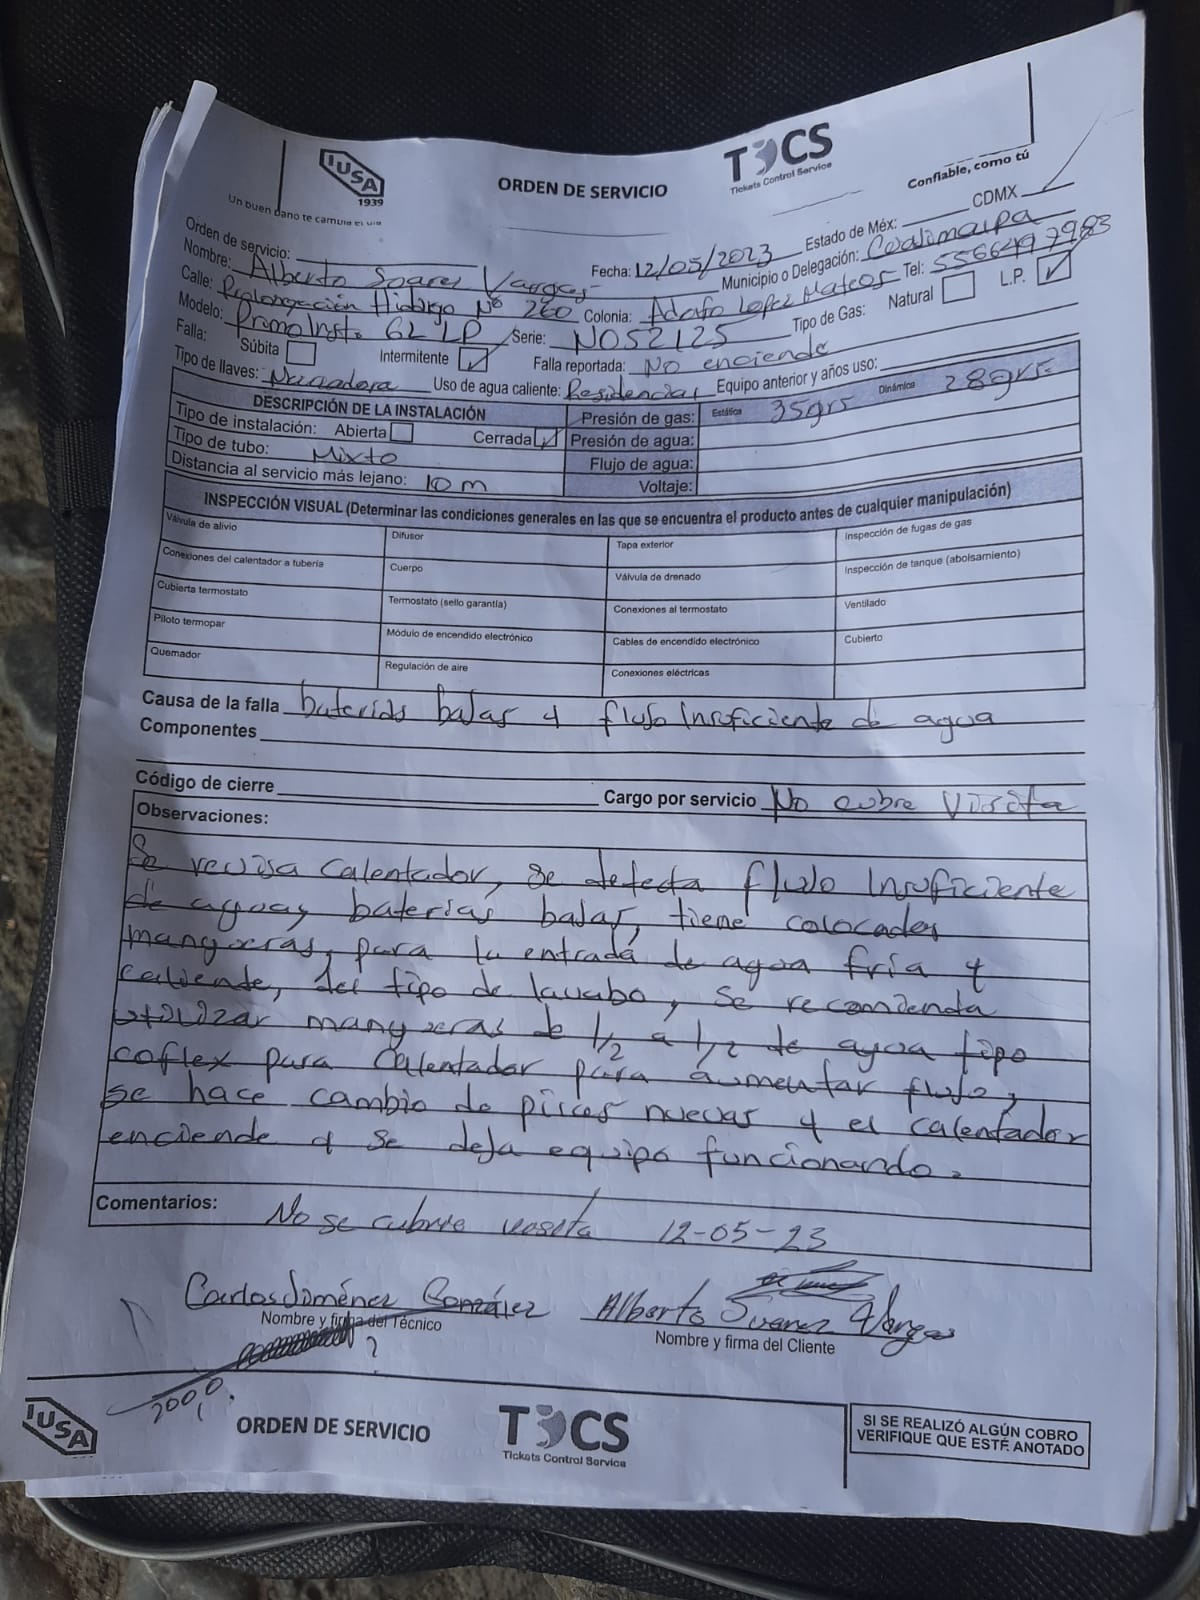 IUSA
1939
Un buen baño te cambia el día
ORDEN DE SERVICIO
TCS
Tickets Control Service
Confiable, como tú
Orden de servicio:
Fecha: 12/05/2023 Estado de Méx: CDMX
Nombre: Alberto Soares Vargas Municipio o Delegación: Cuajimalpa
Calle: Prolongación Hidalgo Nº 260 Colonia: Adolfo Lopez Mateos Tel: 5566497983
Modelo: Promo Insta 6L LP Serie: N052125 Tipo de Gas: Natural L.P. ✓
Falla: Súbita Intermitente ✓ Falla reportada: No enciende
Tipo de llaves: Uso de agua caliente: Residencial Equipo anterior y años uso:
DESCRIPCIÓN DE LA INSTALACIÓN Presión de gas: Estática 35grs Dinámica 28grs
Tipo de instalación: Abierta Cerrada ✓ Presión de agua:
Tipo de tubo: Mixto Flujo de agua:
Distancia al servicio más lejano: 10 m Voltaje:
INSPECCIÓN VISUAL (Determinar las condiciones generales en las que se encuentra el producto antes de cualquier manipulación)
Válvula de alivio Difusor Tapa exterior Inspección de fugas de gas
Conexiones del calentador a tubería Cuerpo Válvula de drenado Inspección de tanque (abolsamiento)
Cubierta termostato Termostato (sello garantía) Conexiones al termostato Ventilado
Piloto termopar Módulo de encendido electrónico Cables de encendido electrónico Cubierto
Quemador Regulación de aire Conexiones eléctricas
Causa de la falla baterias bajas y flujo insuficiente de agua
Componentes
Código de cierre Cargo por servicio No cubre Visita
Observaciones:
Se revisa calentador, se detecta flujo insuficiente
de agua y baterías bajas, tiene colocadas
mangueras, para la entrada de agua fría y
caliente, del tipo de lavabo, se recomienda
utilizar mangueras de 1/2 a 1/2 de agua tipo
coflex para calentador para aumentar flujo,
se hace cambio de piezas nuevas y el calentador
enciende y se deja equipo funcionando.
Comentarios: No se cubrio 12-05-23
Carlos Jiménez González Alberto Suarez Vargas
Nombre y firma del Técnico Nombre y firma del Cliente
?
2000
IUSA
ORDEN DE SERVICIO
TCS
Tickets Control Service
SI SE REALIZÓ ALGÚN COBRO
VERIFIQUE QUE ESTÉ ANOTADO